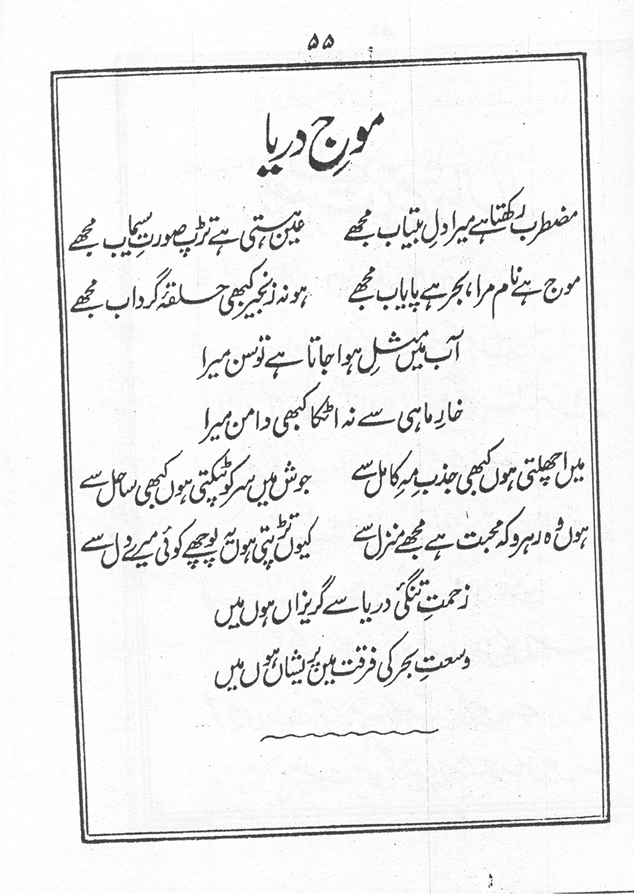 ۵۵
موجِ دریا
مضطرب رکھتا ہے میرا دلِ بیتاب مجھے عینِ ہستی ہے تڑپ صورتِ سیماب مجھے
موج ہے نام مرا، بحر ہے پایاب مجھے ہو نہ زنجیر کبھی حلقۂ گرداب مجھے
آب میں مثلِ ہوا جاتا ہے توسن میرا
خارِ ماہی سے نہ اٹکا کبھی دامن میرا
میں اچھلتی ہوں کبھی جذبِ مہِ کامل سے جوش میں سر کو ٹپکتی ہوں کبھی ساحل سے
ہوں وہ رہرو کہ محبت ہے مجھے منزل سے کیوں تڑپتی ہوں یہ پوچھے کوئی میرے دل سے
زحمتِ تنگیِ دریا سے گریزاں ہوں میں
وسعتِ بحر کی فرقت میں پریشاں ہوں میں